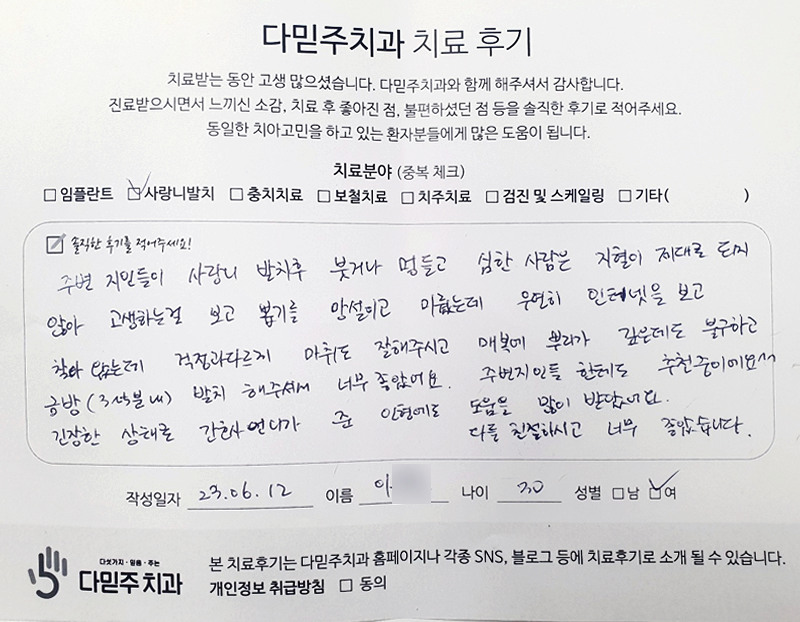 다믿주치과 치료 후기
치료받는 동안 고생 많으셨습니다. 다믿주치과와 함께 해주셔서 감사합니다.
진료받으시면서 느끼신 소감, 치료 후 좋아진 점, 불편하셨던 점 등을 솔직한 후기로 적어주세요.
동일한 치아고민을 하고 있는 환자분들에게 많은 도움이 됩니다.
치료분야 (중복 체크)
□ 임플란트 ☑ 사랑니발치 □ 충치치료 □ 보철치료 □ 치주치료 □ 검진 및 스케일링 □ 기타( )
솔직한 후기를 적어주세요!
주변 지인들이 사랑니 발치후 붓거나 멍들고 심한 사람은 지혈이 제대로 되지
않아 고생하는걸 보고 뽑기를 망설이고 미뤘는데 우연히 인터넷을 보고
찾아 왔는데 걱정과다르게 마취도 잘해주시고 매복에 뿌리가 깊은데도 불구하고
금방(3분내) 발치 해주셔서 너무 좋았어요. 주변지인들 한테도 추천중이에요^^
긴장한 상태로 간호사 언니가 준 인형에도 도움을 많이 받았어요.
다들 친절하시고 너무 좋았습니다.
작성일자 23.06.12 이름 이 나이 30 성별 □남 ☑여
다섯가지·믿음·주는
다믿주치과
본 치료후기는 다믿주치과 홈페이지나 각종 SNS, 블로그 등에 치료후기로 소개 될 수 있습니다.
개인정보 취급방침 □ 동의